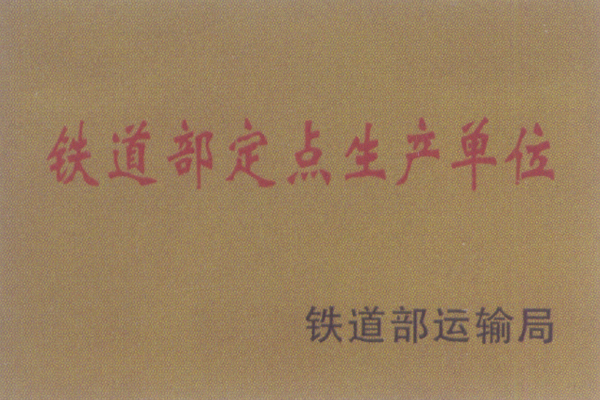 铁道部定点生产单位
铁道部运输局